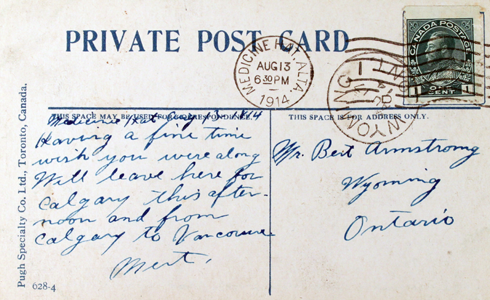 PRIVATE POST CARD
MEDICINE HAT, ALTA.
AUG 13
6 30 PM
1914
CANADA POSTAGE
1 ONE CENT 1
WYOMING ONT
THIS SPACE MAY BE USED FOR CORRESPONDENCE
THIS SPACE IS FOR ADDRESS ONLY.
Medicine Hat Aug 13 - 14
Having a fine time
wish you were along
Will leave here for
Calgary this after-
noon and from
Calgary to Vancouver
Mert.
Mr. Bert Armstrong
Wyoming
Ontario
Pugh Specialty Co. Ltd., Toronto, Canada.
628-4